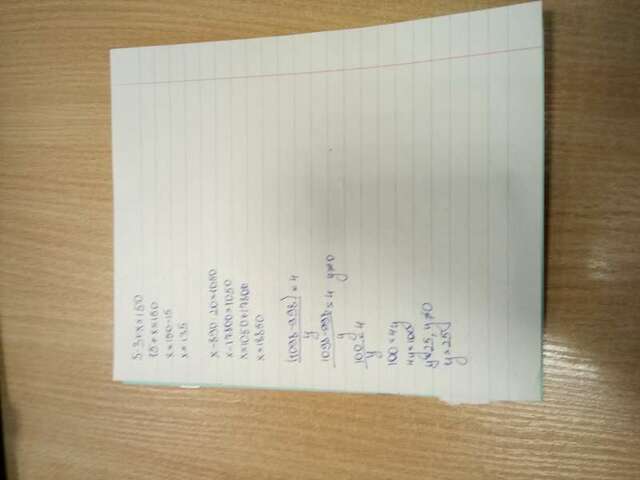 5·3+x=150
15+x=150
x=150-15
x=135
x-890·20=1050
x-17800=1050
x=1050+17800
x=18850
(1098-998)/y=4
1098-998/y=4 y≠0
100/y=4
100=4y
4y=100
y=25, y≠0
y=25